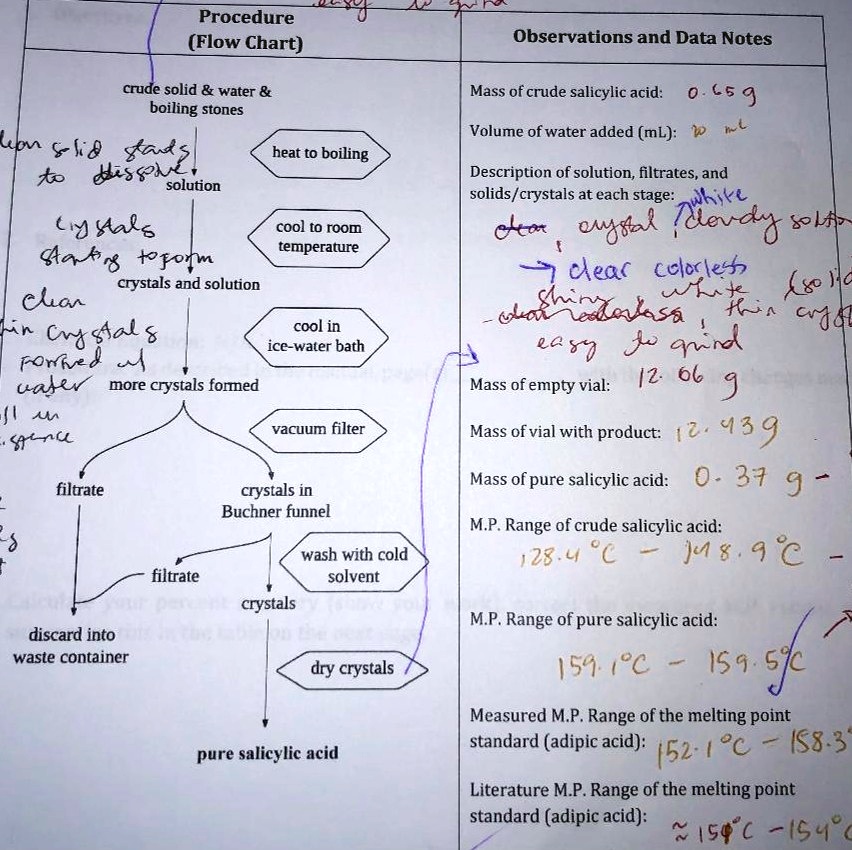 easy to grind
Procedure
(Flow Chart)
Observations and Data Notes
crude solid & water &
boiling stones
solid starts
to dissolve
heat to boiling
solution
crystals
starting to form
cool to room
temperature
crystals and solution
clear
crystals
formed
water
cool in
ice-water bath
more crystals formed
vacuum filter
filtrate
crystals in
Buchner funnel
wash with cold
solvent
filtrate
crystals
discard into
waste container
dry crystals
pure salicylic acid
Mass of crude salicylic acid: 0.65 g
Volume of water added (mL): mL
Description of solution, filtrates, and
solids/crystals at each stage:
white
clear, crystal, cloudy solution
→ clear colorless
shiny, white (solid
- clear colorless, thin cryst
easy to grind
Mass of empty vial: 12.06 g
Mass of vial with product: 12.43 g
Mass of pure salicylic acid: 0.37 g -
M.P. Range of crude salicylic acid:
128.4 °C - 148.9 °C -
M.P. Range of pure salicylic acid:
159.1°C - 159.5°C
Measured M.P. Range of the melting point
standard (adipic acid): 152.1°C - 158.3°
Literature M.P. Range of the melting point
standard (adipic acid):
- 154°C